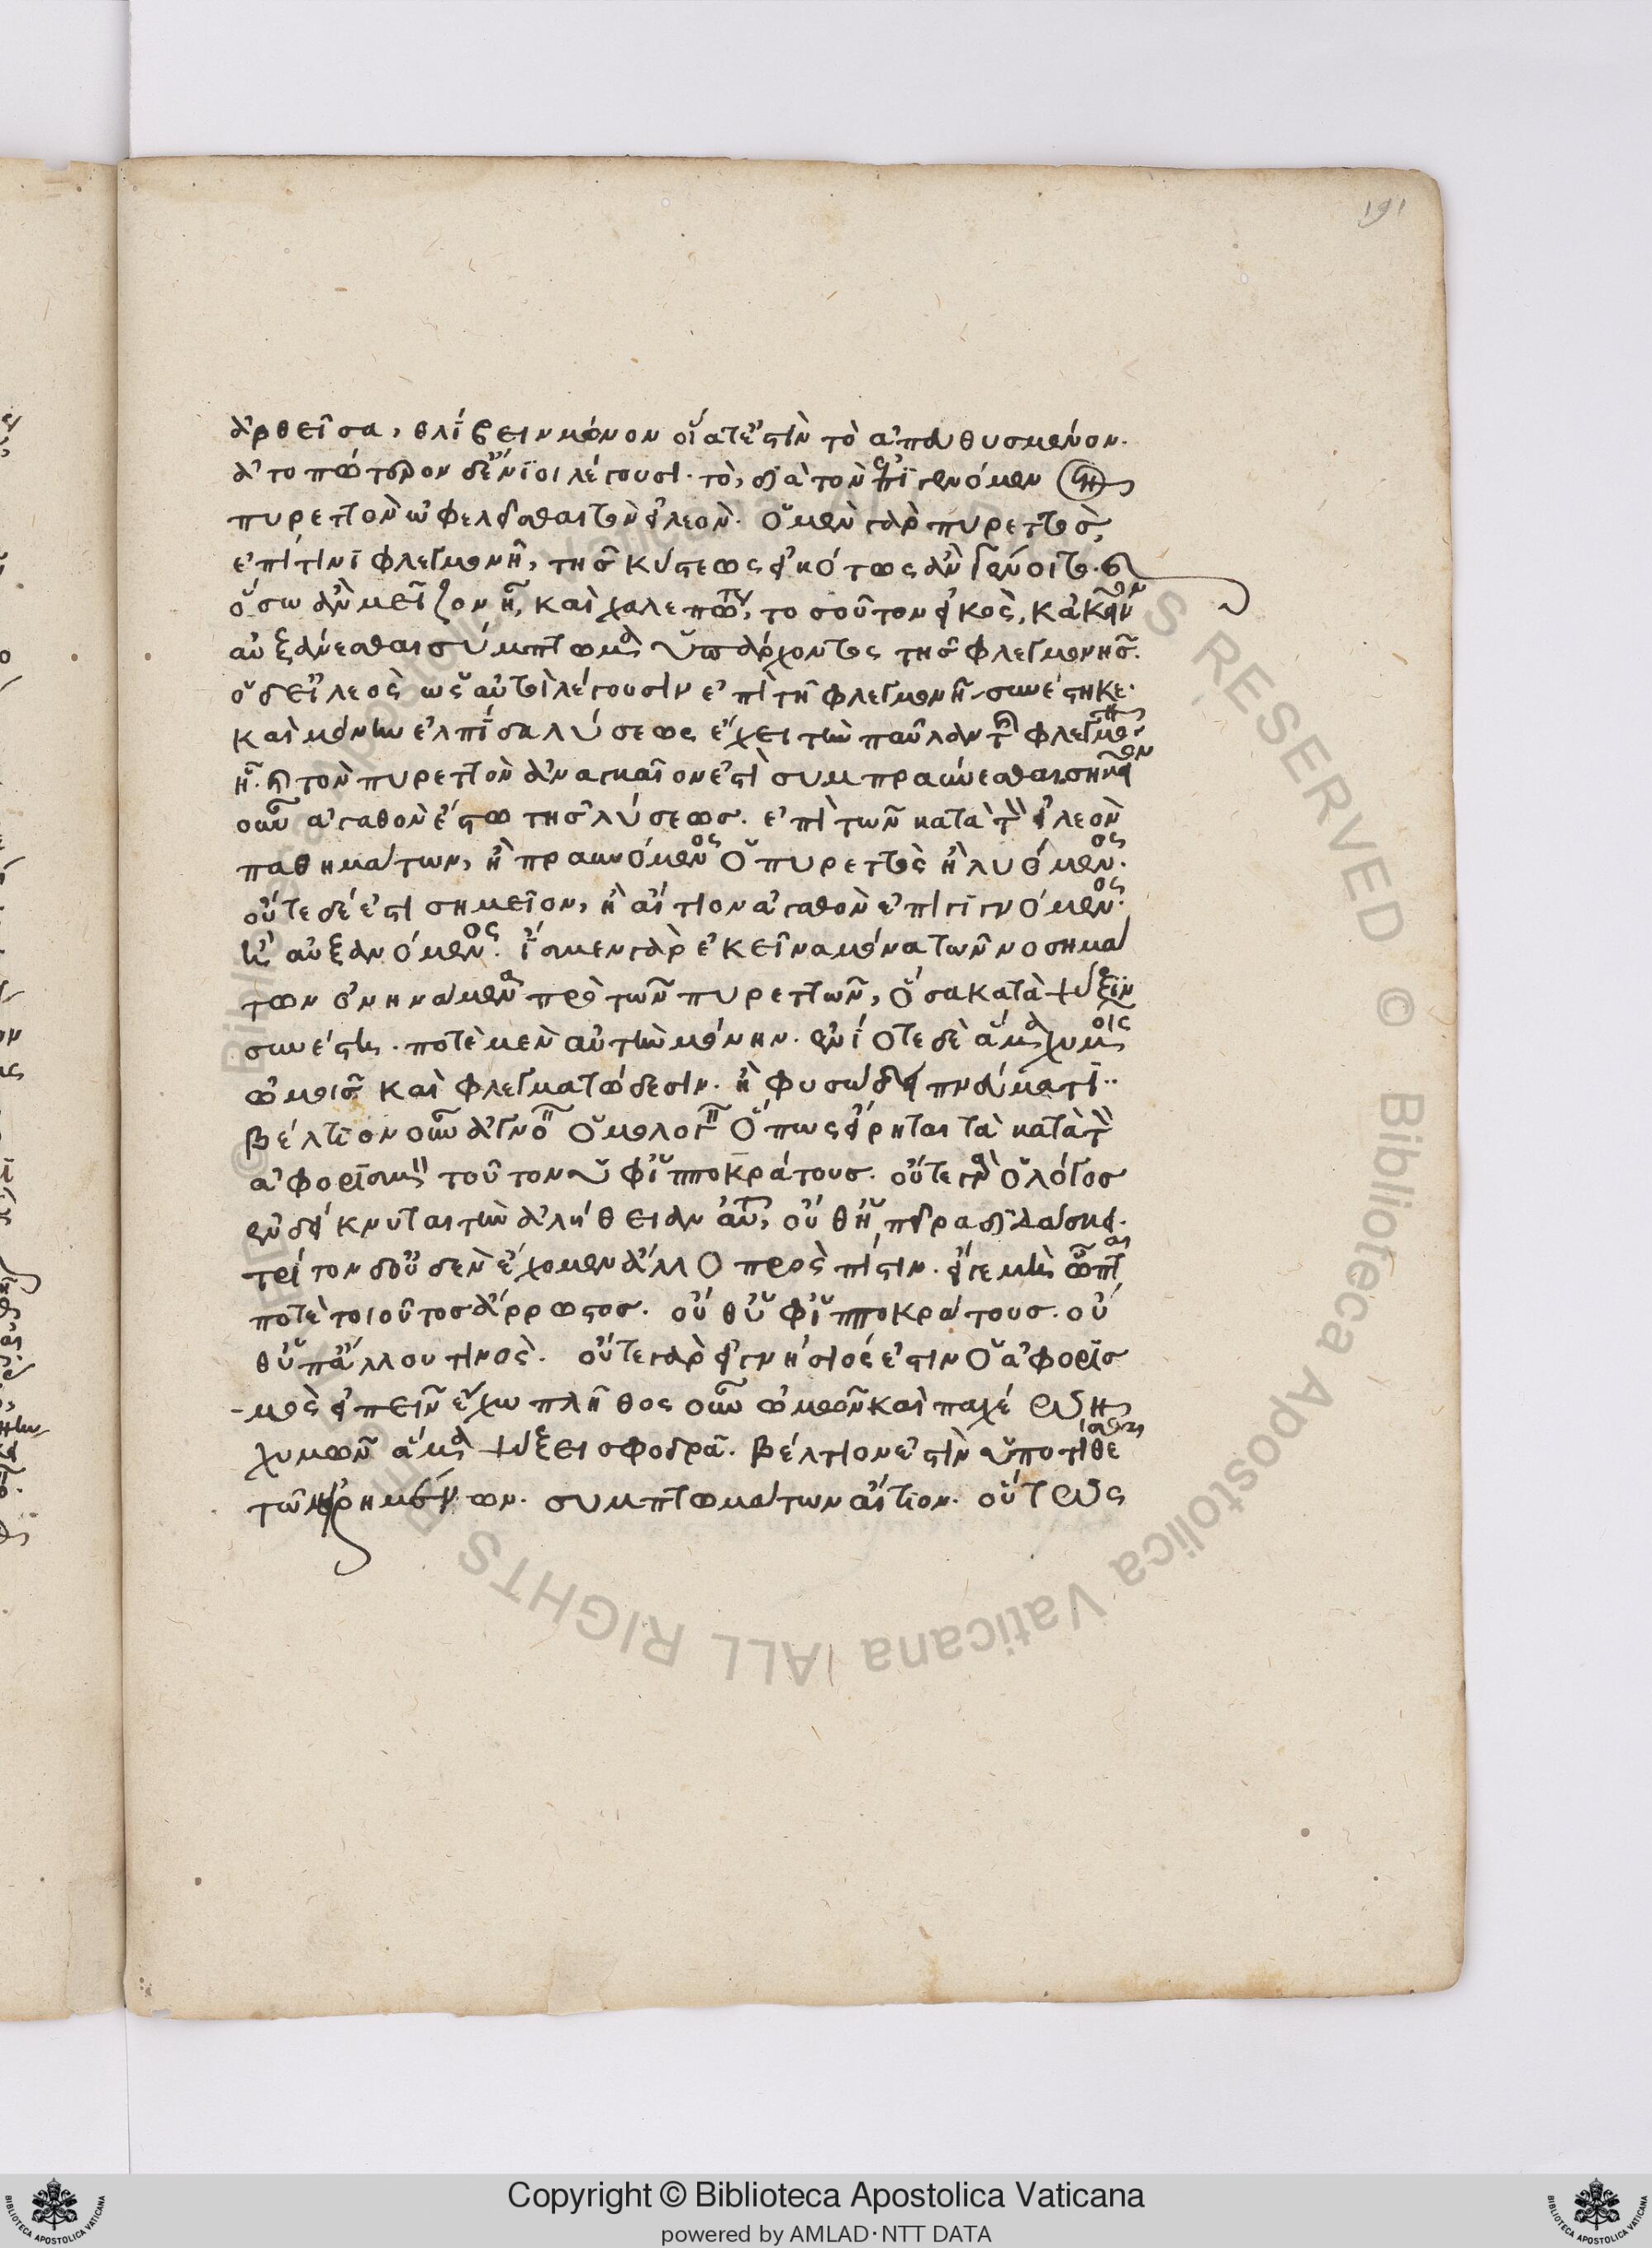 191
ἀρθεῖσα, θλίβειν μόνον οἷα τέ ἐστὶν τὸ ἀπευθυσμένον.
ἀτοπώτερον δ' ἔνιοι λέγουσι. τὸ, διὰ τὸν ἐπιγενόμεν
πυρετὸν ὠφελεῖσθαι τὸν εἰλεόν. ὁ μὲν γὰρ πυρετὸς,
ἐπί τινι φλεγμονῇ, τῆς κύστεως εἰκότως ἂν γένοιτο.
ὅσω ἂν μεῖζον ᾖ, καὶ χαλεπώτ, τοσοῦτον εἰκὸς, κἀκεῖνον
αὐξάνεσθαι σύμπτωμα ὑπάρχοντος τῆς φλεγμονῆς.
ὁ δ' εἰλεὸς ὡς αὐτοὶ λέγουσιν ἐπὶ τῇ φλεγμονῇ συνέστηκε.
καὶ μόνην ἐλπίδα λύσεως ἔχει τὴν παῦλαν τ φλεγμον
ῆς. καὶ τὸν πυρετὸν ἀναγκαῖον ἐστὶ συμπραΰνεσθαι. σημεῖον
οὖν ἀγαθὸν ἔστω τῆς λύσεως. ἐπὶ τῶν κατὰ τὸν εἰλεὸν
παθημάτων, ἢ πραϋνόμενος ὁ πυρετὸς ἢ λυόμενος.
οὔτε δέ ἐστι σημεῖον, ἢ αἴτιον ἀγαθὸν ἐπιγιγνόμενος.
ἢ αὐξανόμενος. ἴσμεν γὰρ ἐκεῖνα μόνα τῶν νοσημά
των ὀνηνάμενα πρὸ τῶν πυρετῶν, ὅσα κατὰ ψύξιν
συνέστη. ποτὲ μὲν αὐτὴν μόνην. ἐνίοτε δὲ ἅμα χυμοῖς
ὠμοῖς καὶ φλεγματώδεσιν. ἢ φυσώδει πνεύματι..
βέλτιον οὖν ἀγνο ὁμολογ ὅπως εἴρηται τὰ κατὰ τὸν
ἀφορισμὸν τοῦτον ὑφ' ἱπποκράτους. οὔτε γὰρ ὁ λόγος
ἐνδείκνυται τὴν ἀλήθειαν αὐτ, οὔθ' ἡ πεῖρα διδάσκει.
τρίτον δ' οὐδὲν ἔχομεν ἄλλο πρὸς πίστιν. εἴγε μὴ ὦπτ
ποτὲ τοιοῦτος ἄρρωστος. οὔθ' ὑφ' ἱπποκράτους. οὔ
θ' ὑπ' ἄλλου τινός. οὔτε γὰρ εἰ γνήσιός ἐστιν ὁ ἀφορισ
-μὸς εἰπεῖν ἔχω πλῆθος οὖν ὠμῶν καὶ παχέων
χυμῶν ἅμα ψύξει σφοδρᾷ. βέλτιον ἐστὶν ὑποτίθεσθαι
τῶν εἰρημένων. συμπτωμάτων αἴτιον. οὕτως
Copyright © Biblioteca Apostolica Vaticana
powered by AMLAD·NTT DATA